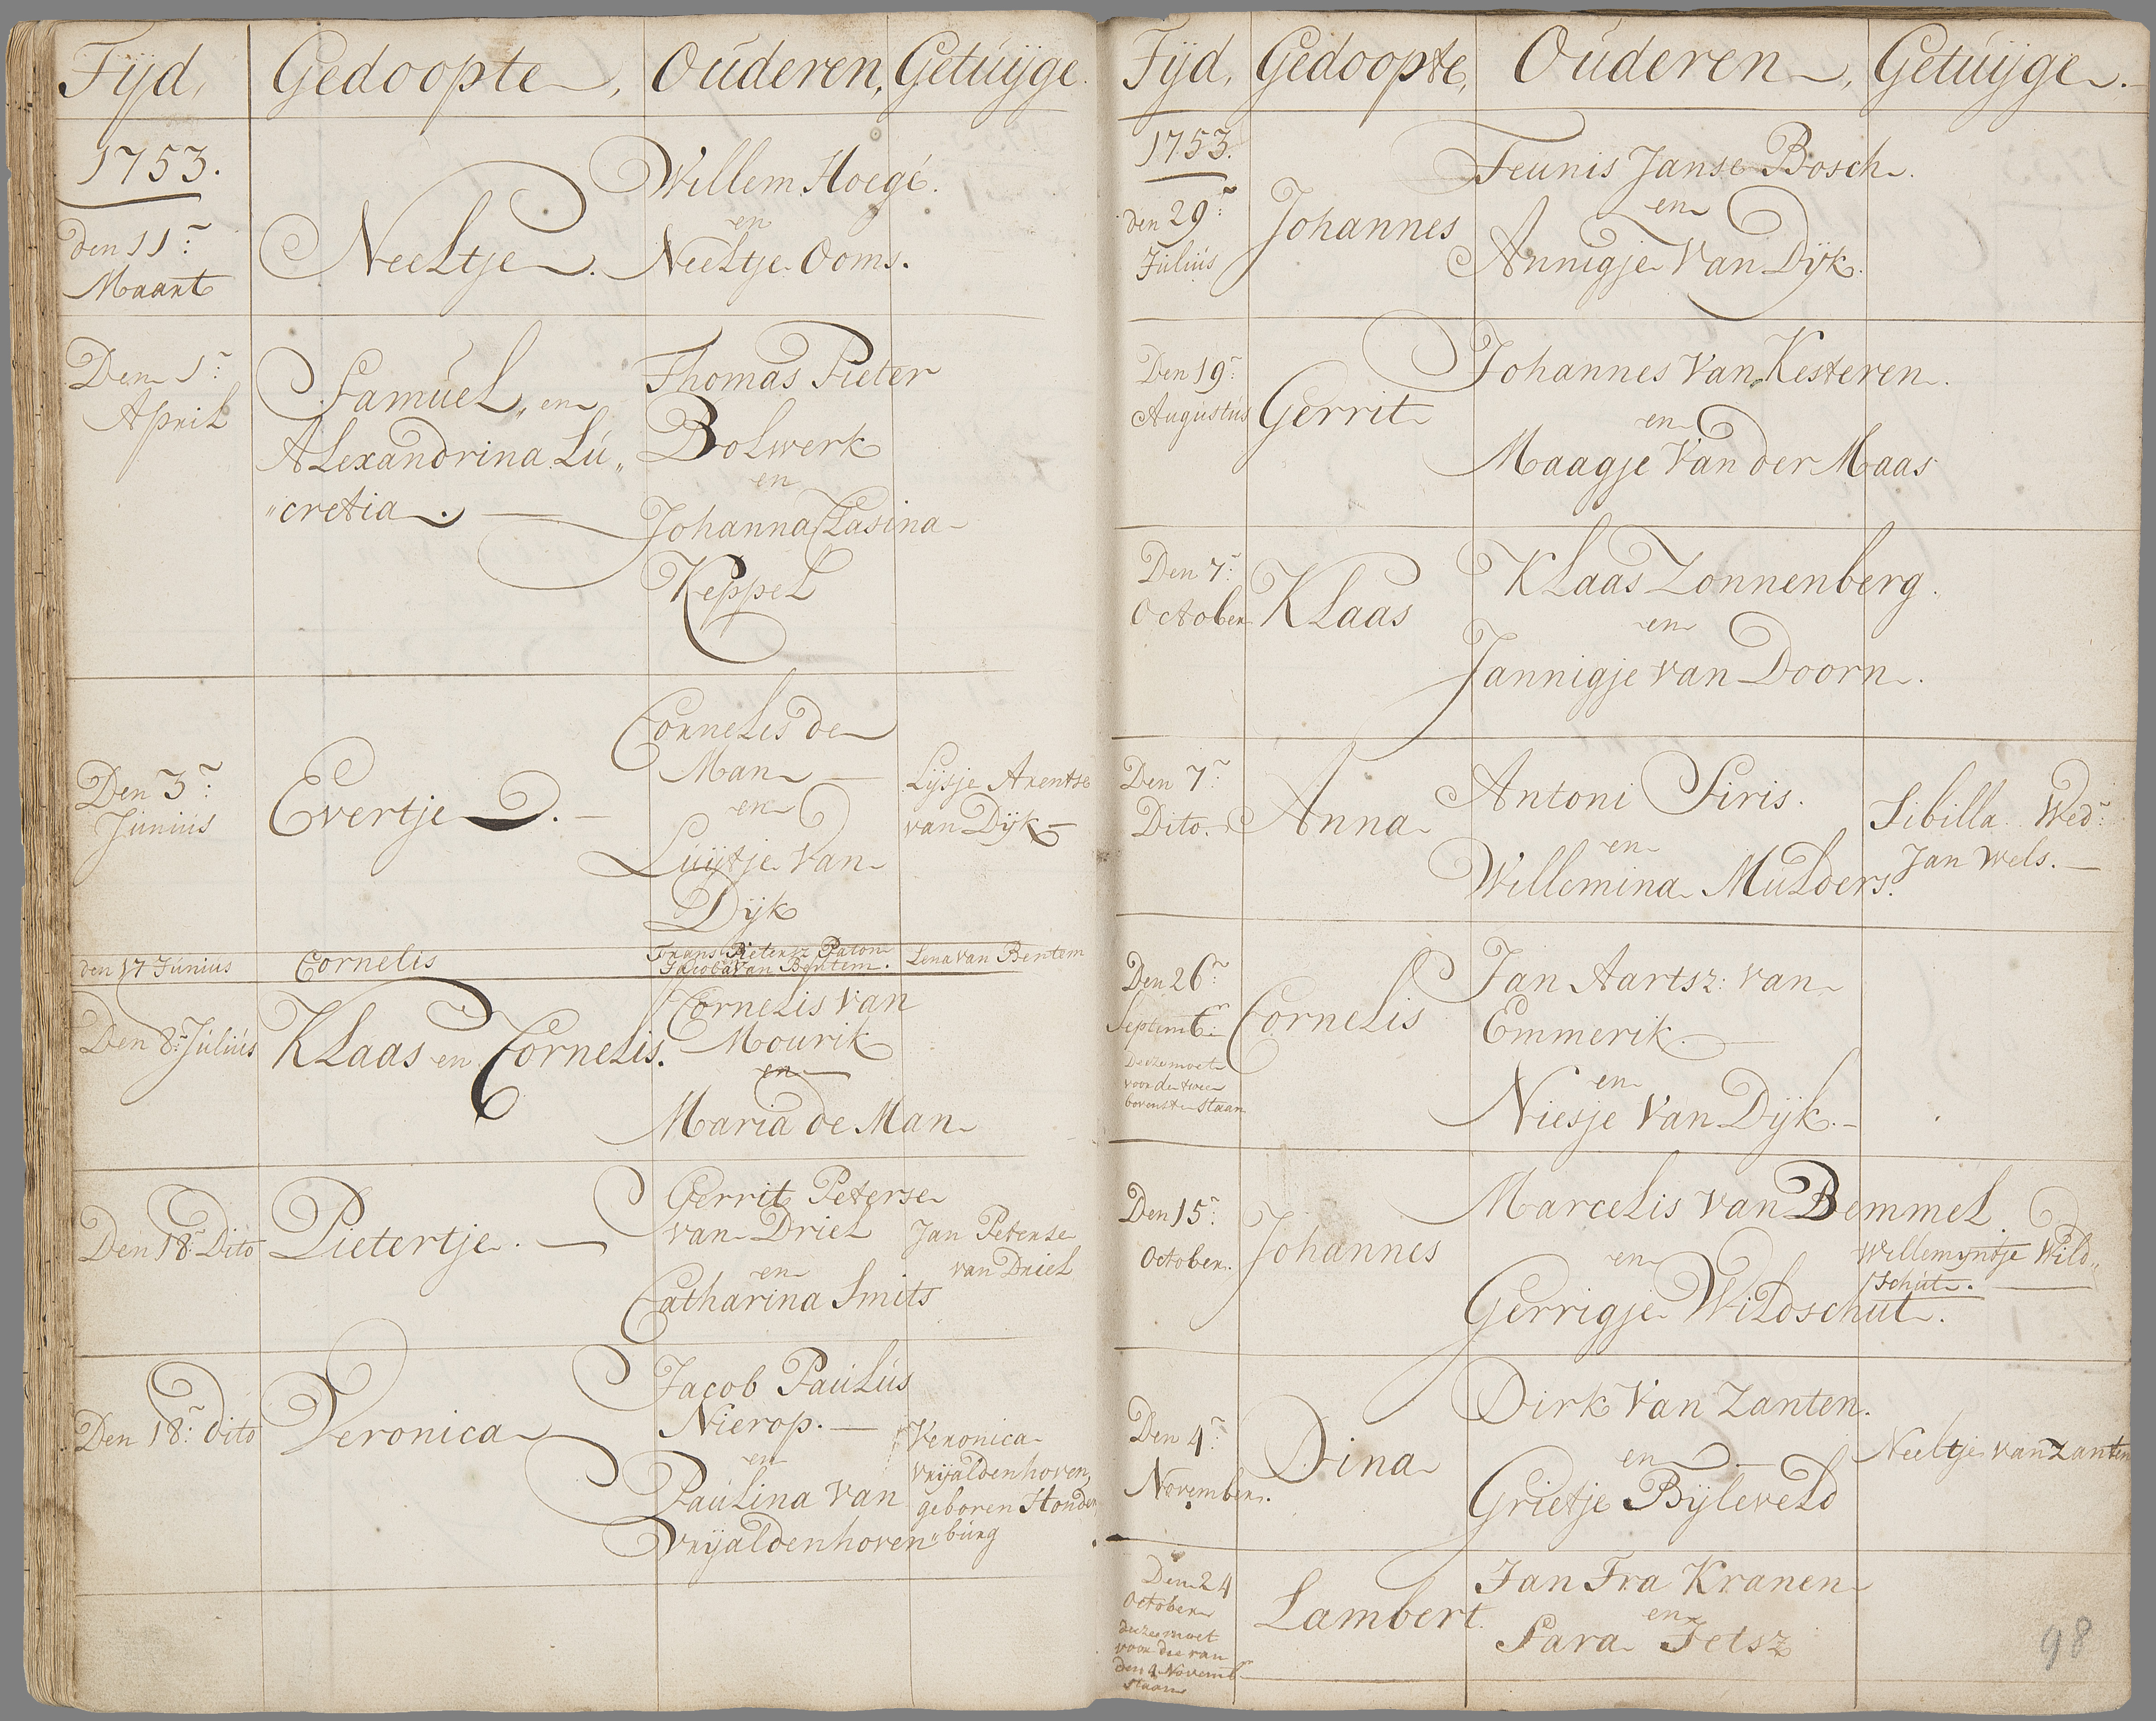 Tijd,
Gedoopte,
Ouderen,
Getuijge.
1753.
den 11:
Maart
Neeltje.
Willem Hoegé.
en
Neeltje Ooms.
Den 1:
April
Samuel,, en
Alexandrina Lu,,
"cretia.
Thomas Pieter
Bolwerk
en
Johanna Clasina
Keppel
Den 3:
Junius
Evertje.
Cornelis de
Man
en
Luijtje van
Dijk
Lijsje Arentse
van Dijk
den 17 Junius
Cornelis
Frans Pietersz Paton
Jacoba van Bentem.
Lena van Bentem
Den 8: Julius
Klaas en Cornelis.
Cornelis van
Mourik
en
Maria de Man
Den 18: Dito
Pietertje.
Gerrit Peterse
van Driel
en
Catharina Smits
Jan Peterse
van Driel
Den 18: dito
Veronica
Jacob Paulus
Nierop.
en
Paulina van
Vrijaldenhoven
Veronica
vrijaldenhoven,
geboren Honden
"burg
Tijd,
Gedoopte,
Ouderen,
Getuijge.
1753.
den 29:
Julius
Johannes
Teunis Janse Bosch.
en
Annigje van Dijk.
Den 19:
Augustus
Gerrit
Johannes van Kesteren.
en
Maagje van der Maas
Den 7:
October
Klaas
Klaas Zonnenberg.
en
Jannigje van Doorn.
Den 7:
Dito.
Anna
Antoni Siris.
en
Willemina Mulders.
Sibilla Wed:
Jan Wels.
Den 26:
Septemb:
Deeze moet
voor de twee
bovenste staan
Cornelis
Jan Aartsz: van
Emmerik.
en
Niesje van Dijk.
Den 15:
October.
Johannes
Marcelis van Bemmel.
en
Gerrigje Wildschut.
Willemyntje Wild,,
schut.
Den 4:
November.
Dina
Dirk van Zanten.
en
Grietje Bijleveld
Neeltje van Zanten
Den 24
October
deeze moet
voor die van
den 4 Novemb
staan
Lambert.
Jan Fra Kranen
en
Sara Jetsz
98